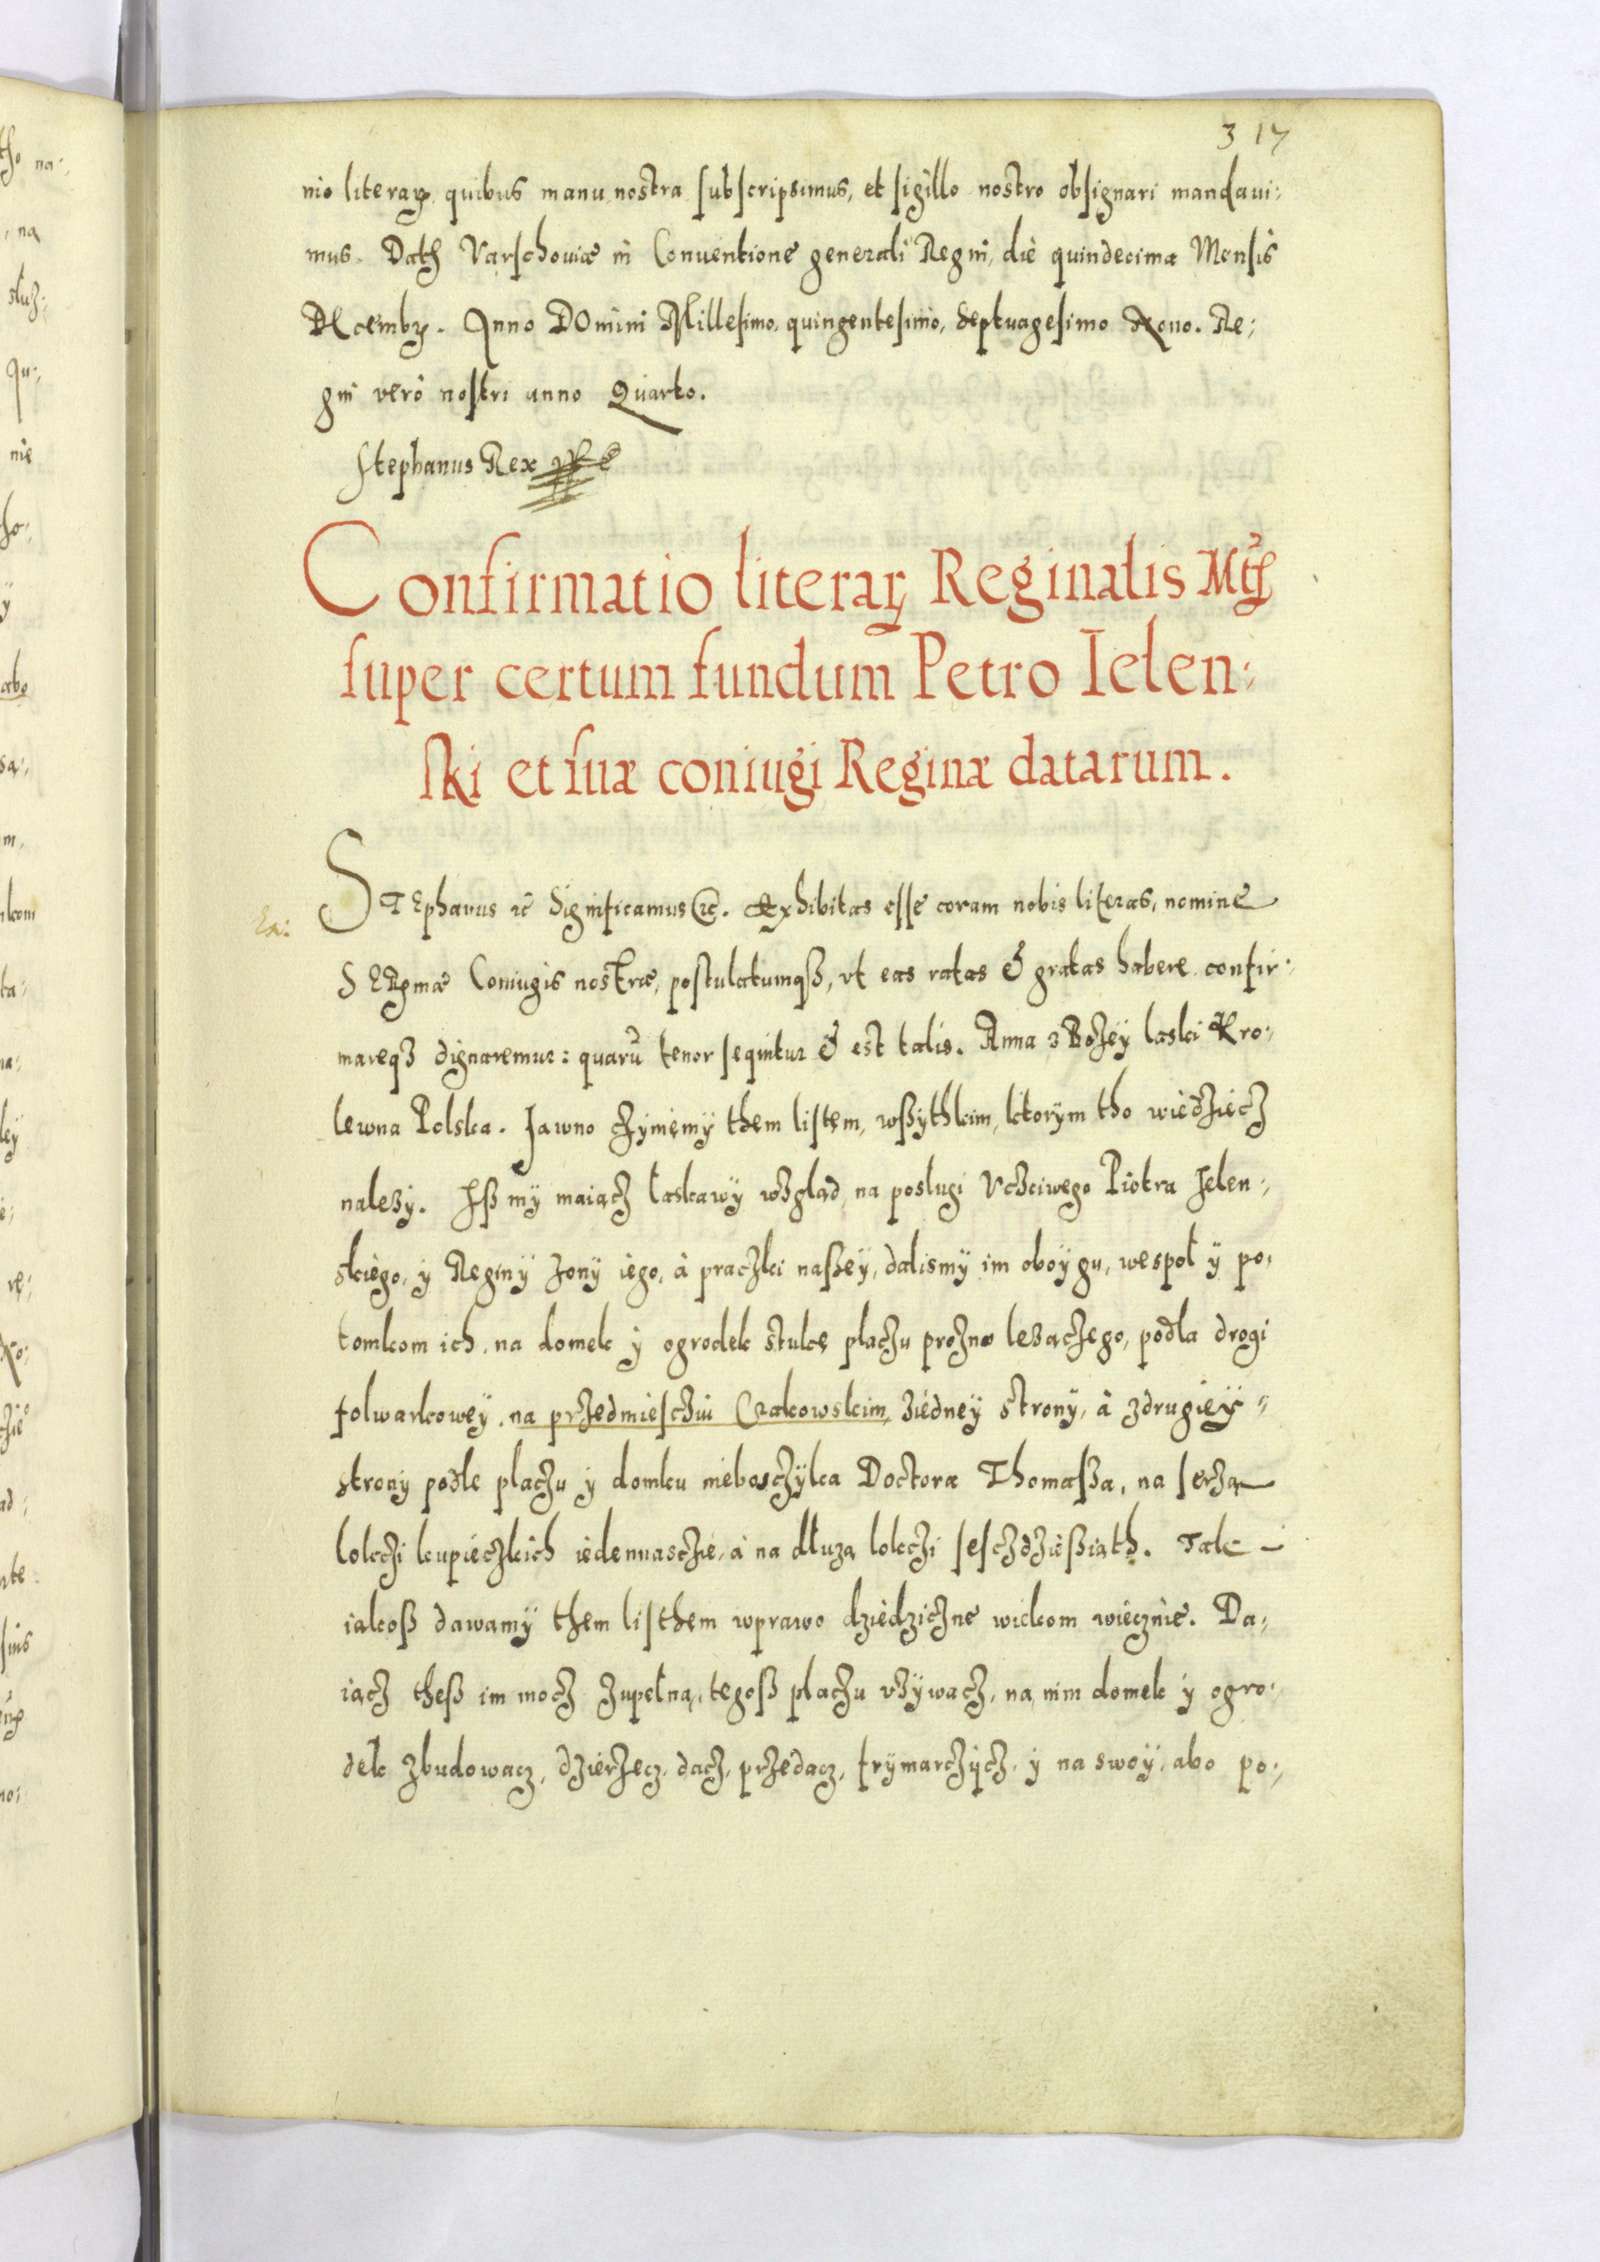 317
nio literaꝝ quibus manu nostra subscripsimus, et sigillo nostro obsignari mandaui:
mus. Dat Varschouiæ in Conuentione generali Regni, die quindecima Mensis
DEcembꝝ. Anno DOmini Millesimo, quingentesimo, septuagesimo Nono. Re:
gni vero nostri anno Quarto.
Stephanus Rex
Confirmatio literaꝝ Reginalis Mtis
super certum fundum Petro Ielen:
ski et suæ coniugi Reginæ datarum.
STEphanus &c Significamus &c. Exhibitas esse coram nobis literas, nomine
SERgmæ Coniugis nostræ, postulatumqȝ, vt eas ratas & gratas habere confir:
mareqȝ dignaremur: quarū tenor sequitur & est talis. Anna z Bożey laski Kro:
lewna Polska. Jawno czynięmy them listem, wßythkim, ktorym tho wiedzięcz
nalezy. Iß my maiącz łaskawy wzgląd, na poslugi Vczciwego Piotra Jelen:
skiego, y Reginy zony iego, à praczki naßey, dalismy im oboygu, wespoł y po:
tomkom ich, na domek y ogrodek stukę placzu prozno lezączego, podla drogi
folwarkowey, na przedmiesczui Crakowskim, ziedney strony, à zdrugiey
strony podle placzu y domku nieboszczyka Doctora Thomaßa, na serzą
lokczi kupieczkich iedennasczie, à na dłuzą lokczi sesczdzießiąth. Tak
iakoß dawamy them listhem wprawo dziedziczne wiekom wiecznie. Da:
iącz theß im mocz zupełną, tegoß placzu vzywacz, na nim domek y ogro:
dek zbudowacz, dzierzecz, dacz, przedacz, frymarczycz, y na swoy, abo po: